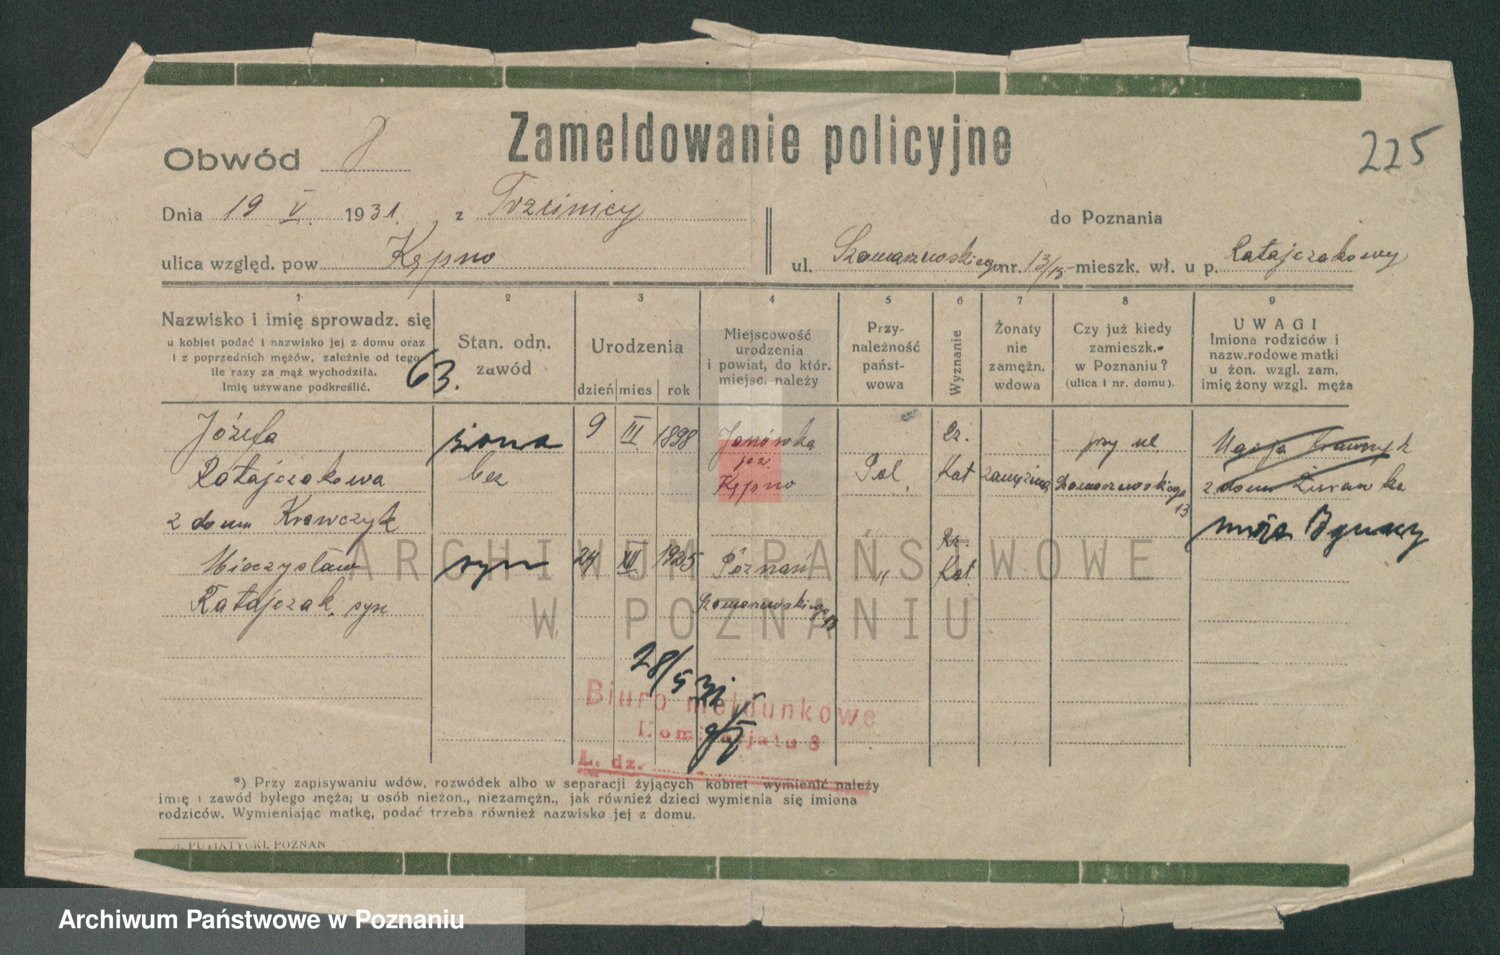 Zameldowanie policyjne
225
Obwód 8
Dnia 19 V. 1931. z Trzcinicy
do Poznania
ulica względ. pow Kępno
ul. Szamarzewskiego nr. 13/15 mieszk. wł. u p. Ratajczakowy
1 2 3 4 5 6 7 8 9
Nazwisko i imię sprowadz. się
u kobiet podać i nazwisko jej z domu oraz
i z poprzednich mężów, zależnie od tego
ile razy za mąż wychodziła.
Imię używane podkreślić.
63.
Stan. odn.
zawód
Urodzenia
dzień mies rok
Miejscowość
urodzenia
i powiat, do któr.
miejsc. należy
Przy-
należność
państ-
wowa
Wyznanie
Żonaty
nie
zamężn.
wdowa
Czy już kiedy
zamieszk.
w Poznaniu?
(ulica i nr. domu).
UWAGI
Imiona rodziców i
nazw.rodowe matki
u żon. wzgl. zam.
imię żony wzgl. męża
Józefa żona 9 III 1898 Janówka Rz. przy ul.
Ratajczakowa bez poz. Kępno Pol. Kat zamężna Szamarzewskiego 13 z domu
z domu Krawczyk męża Ignacy
Mieczysław syn 24 XII 1925 Poznań " Rz. Kat
Ratajczak, syn Szamarzewskiego 13
28/5 31
Biuro meldunkowe
Komisarjatu 8
L. dz.
*) Przy zapisywaniu wdów, rozwódek albo w separacji żyjących kobiet wymienić należy
imię i zawód byłego męża; u osób nieżon., niezamężn., jak również dzieci wymienia się imiona
rodziców. Wymieniając matkę, podać trzeba również nazwisko jej z domu.
PUTIATYCKI, POZNAŃ
ARCHIWUM PAŃSTWOWE
W POZNANIU
Archiwum Państwowe w Poznaniu